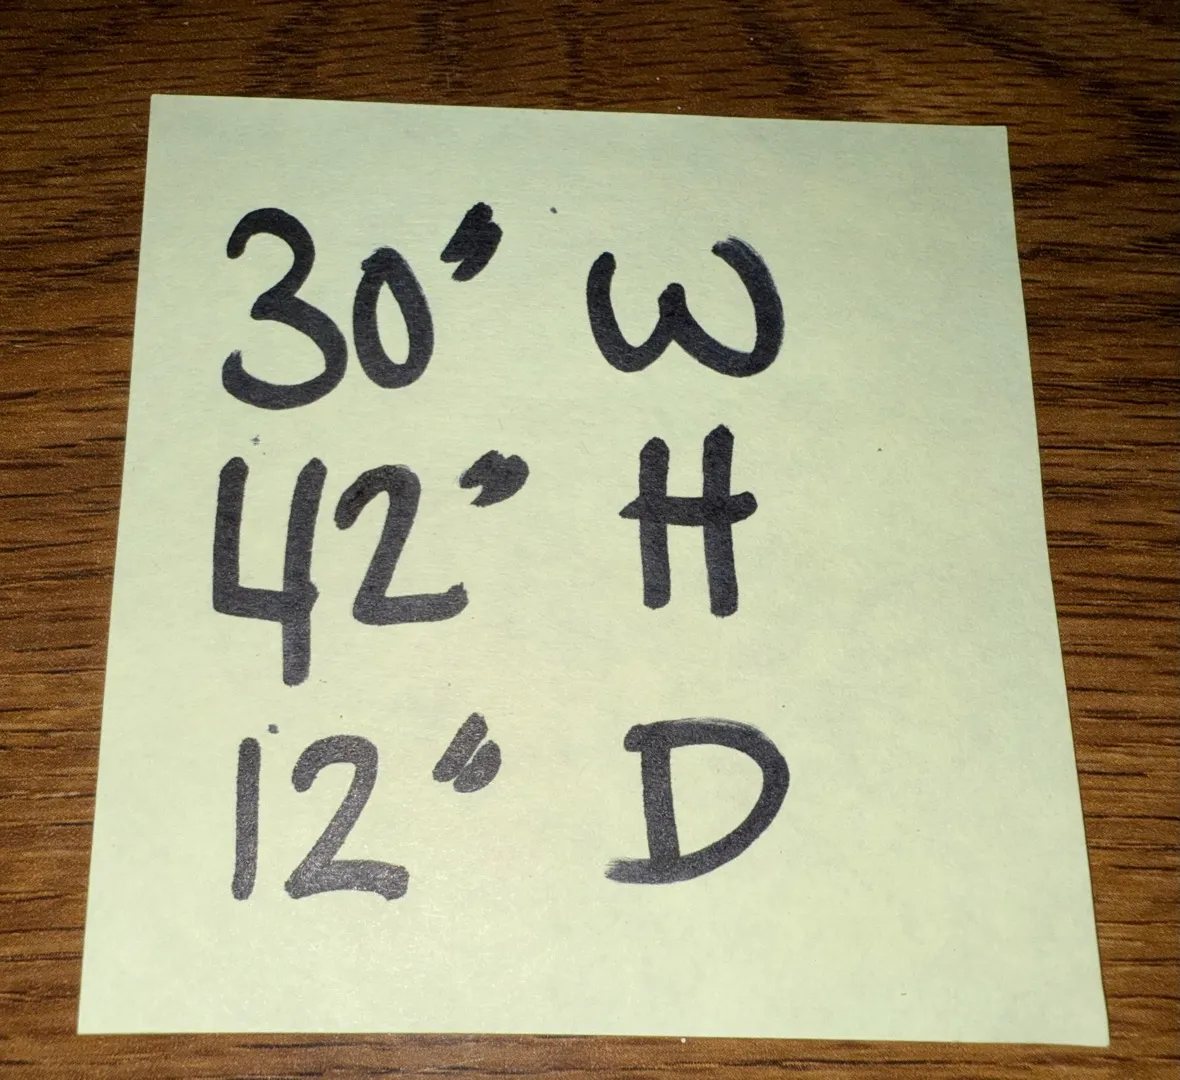 30" W
42" H
12" D